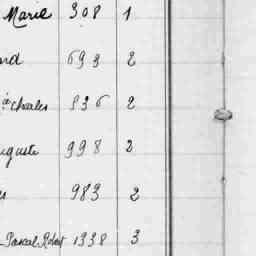 Marie 308 1
rd 693 2
à Charles 836 2
uguste 998 2
983 2
Pascal Robert 1338 3